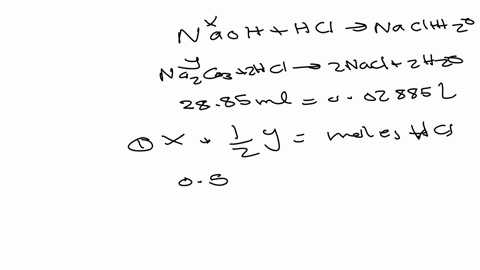 x
NaOH + HCl → NaCl + H2O
y
Na2CO3 + 2HCl → 2NaCl + 2H2O
28.85 ml = 0.02885 L
① x + 1/2 y = moles HCl
0.5